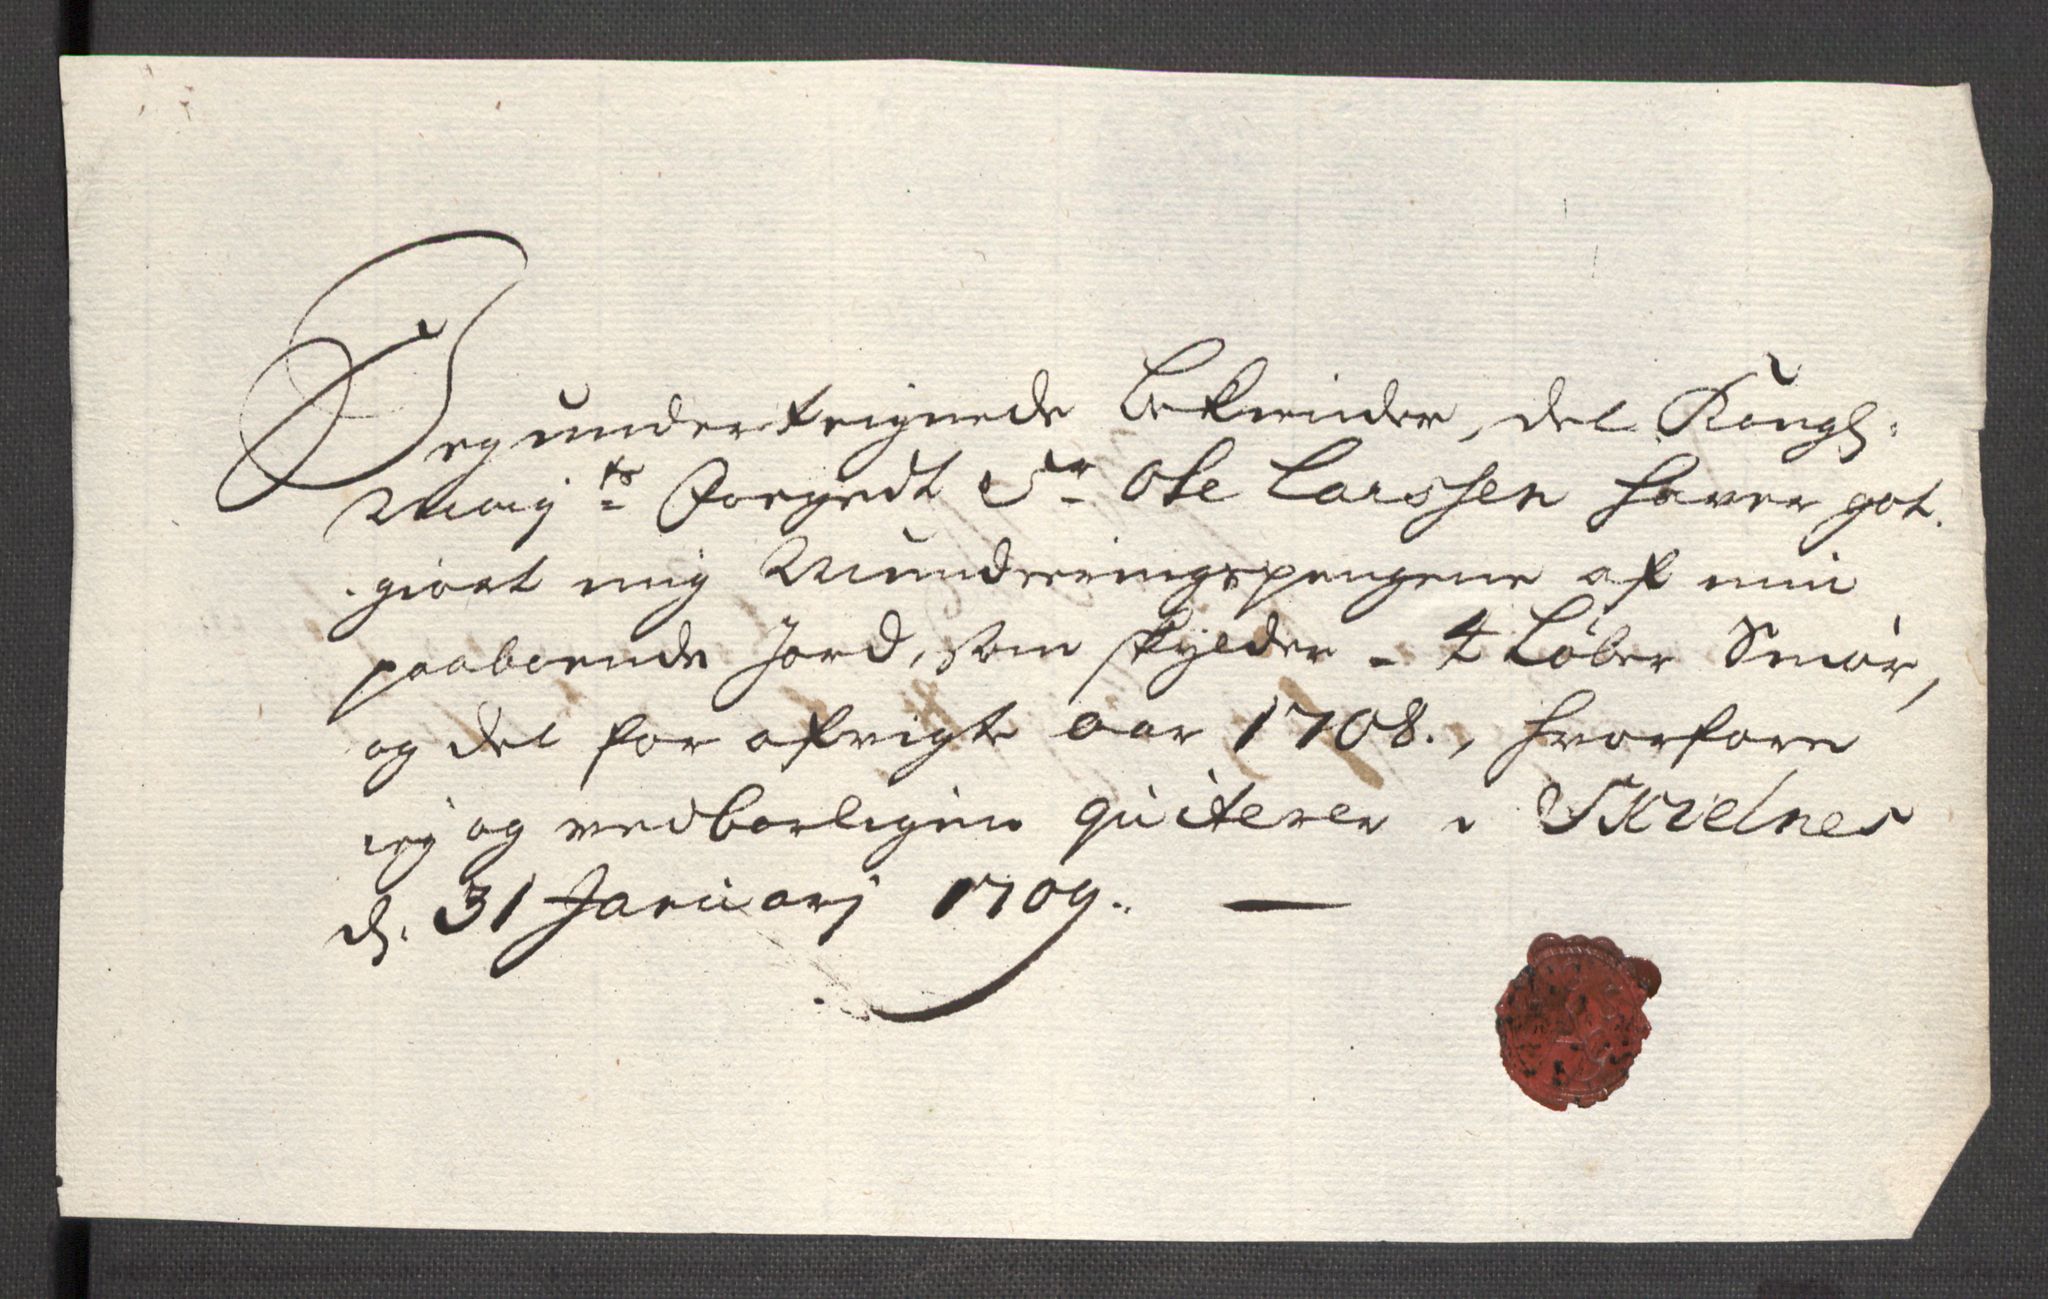 Jeg underteignede bekiender, det Kongl:
Mayts Foegedt Sr Ole Larssen haver got
giort mig Munderingspengene af min
paaboende Jord, som skylder - 4 Løber Smør,
og det for afvigte aar 1708., hvorfore
ieg og vedbørligen quiterer i Skielnes
d. 31 Januarj 1709.